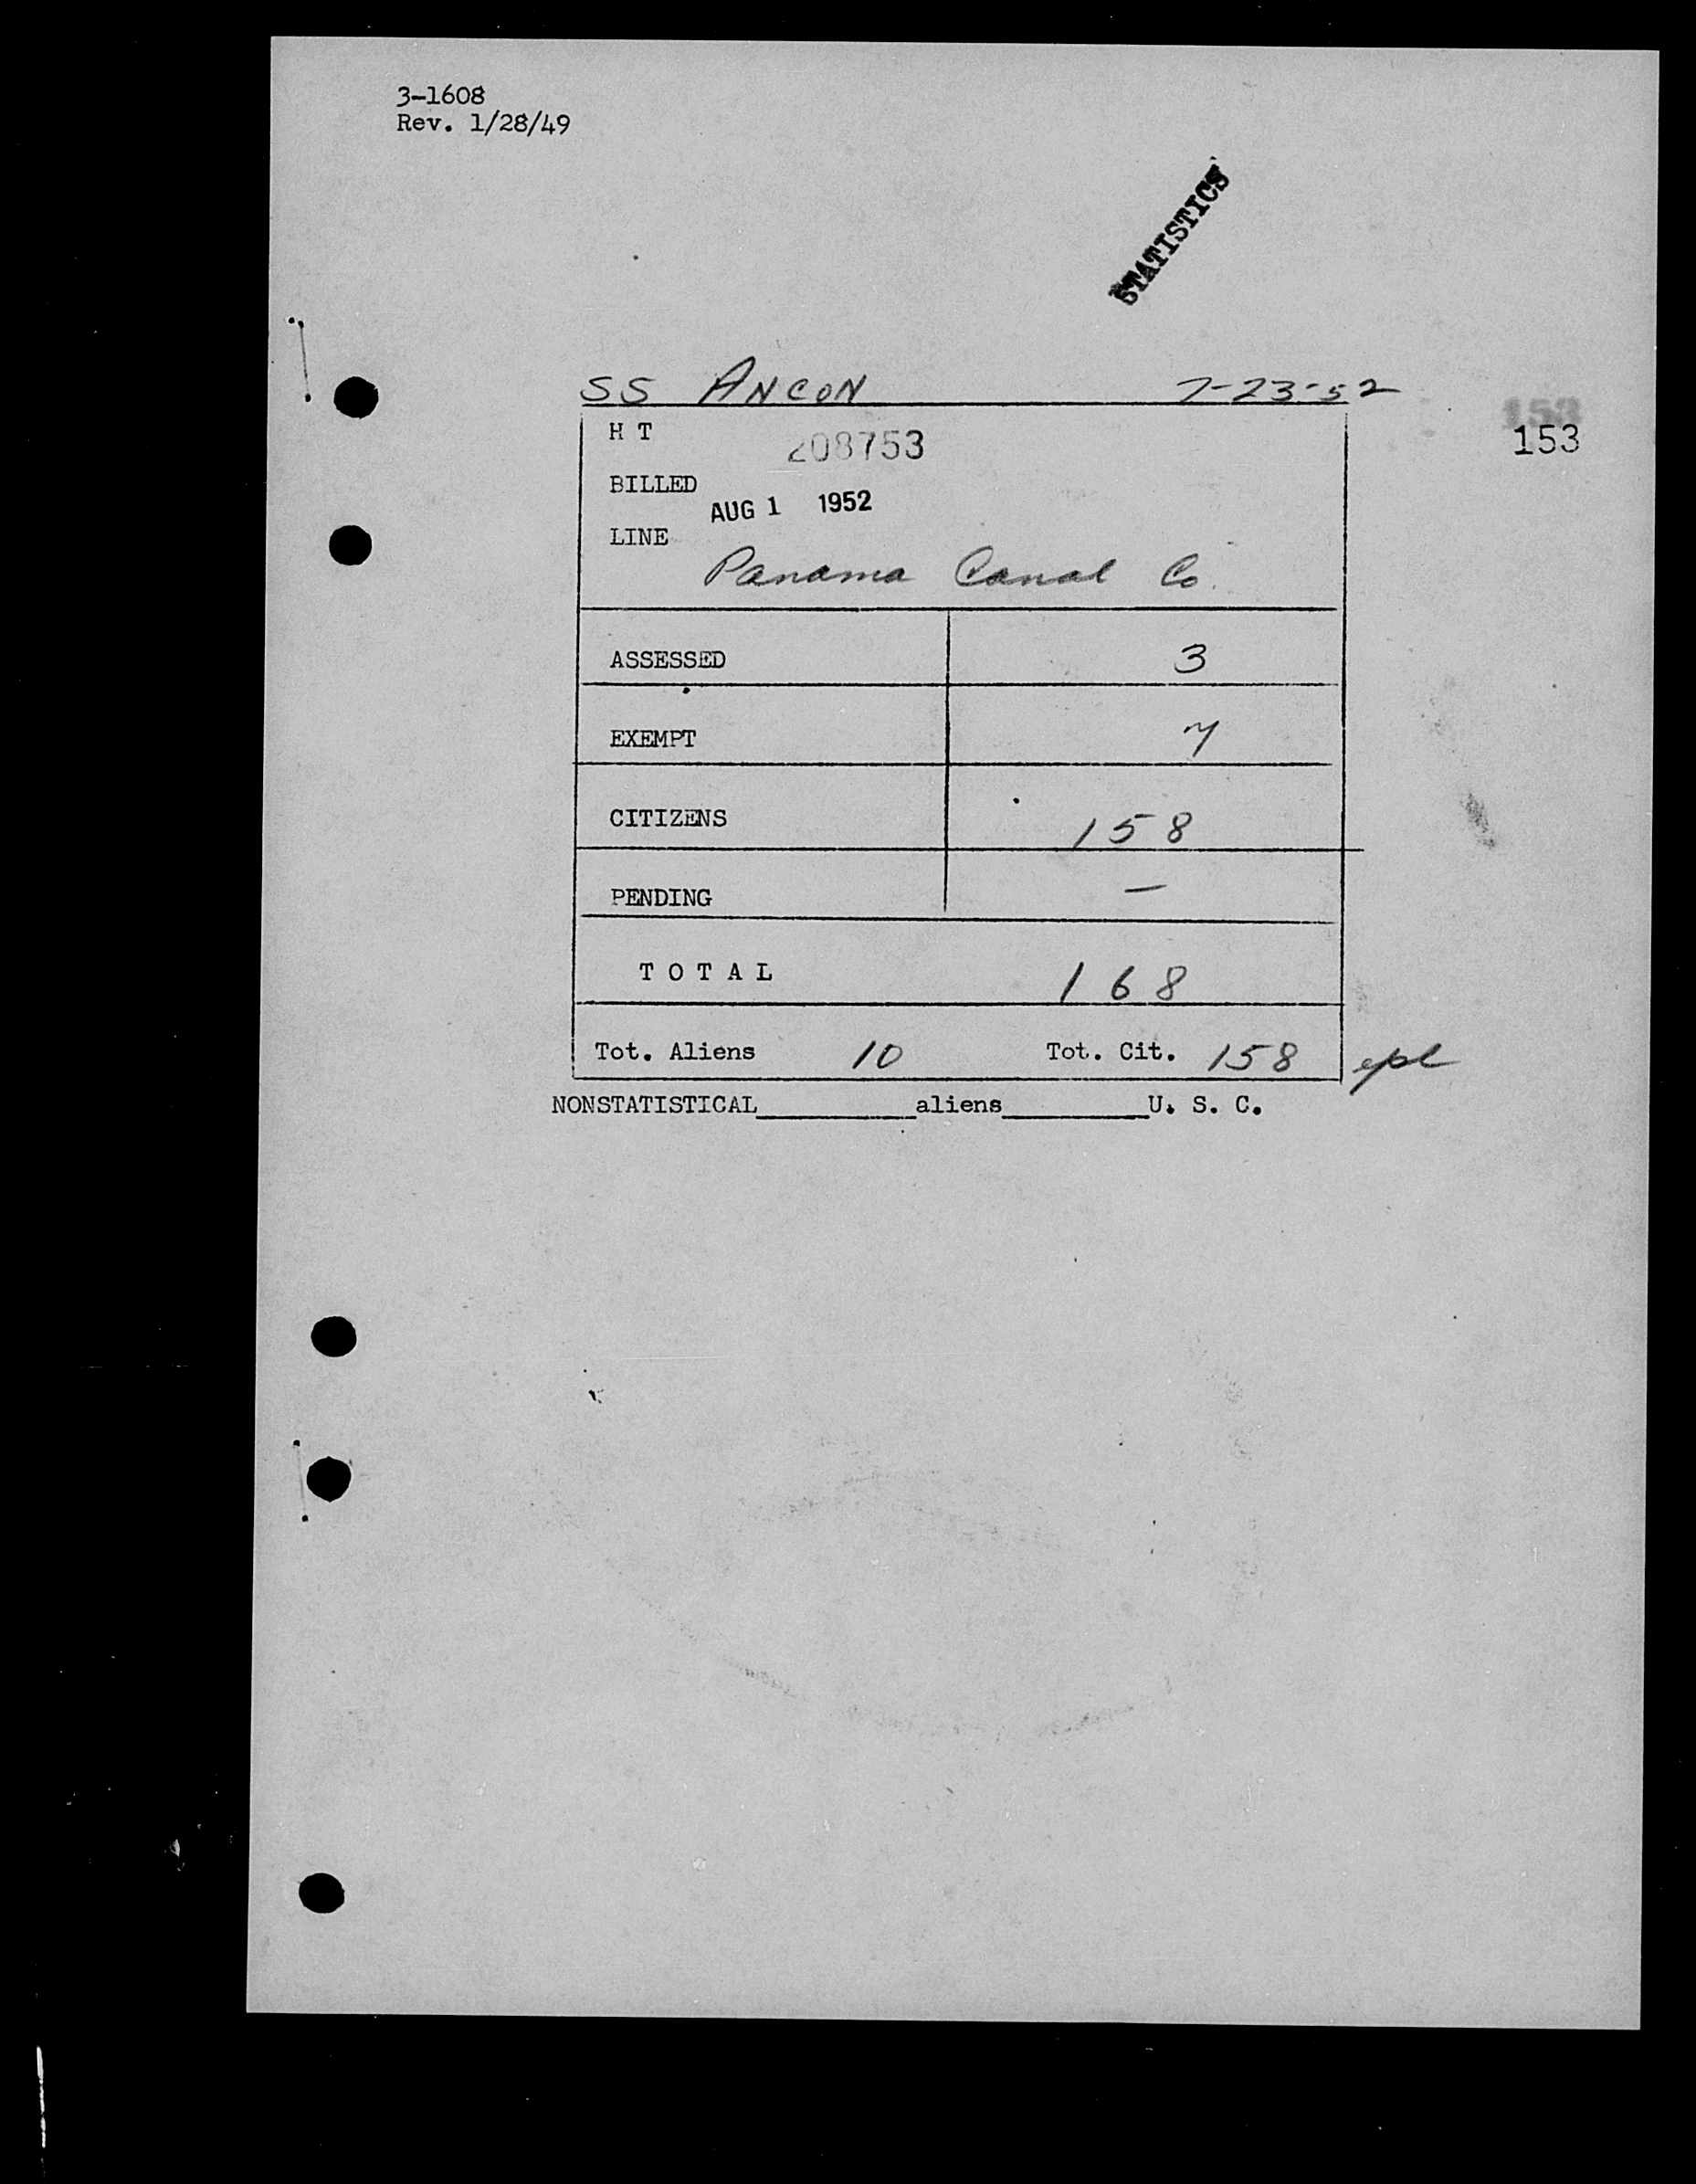 3-1608
Rev. 1/28/49
STATISTICS
SS ANCON 7-23-52
153
H T 208753
153
BILLED
AUG 1 1952
LINE
Panama Canal Co.
ASSESSED 3
EXEMPT 7
CITIZENS 158
PENDING —
T O T A L 168
Tot. Aliens 10 Tot. Cit. 158
NONSTATISTICAL__________aliens__________U. S. C.